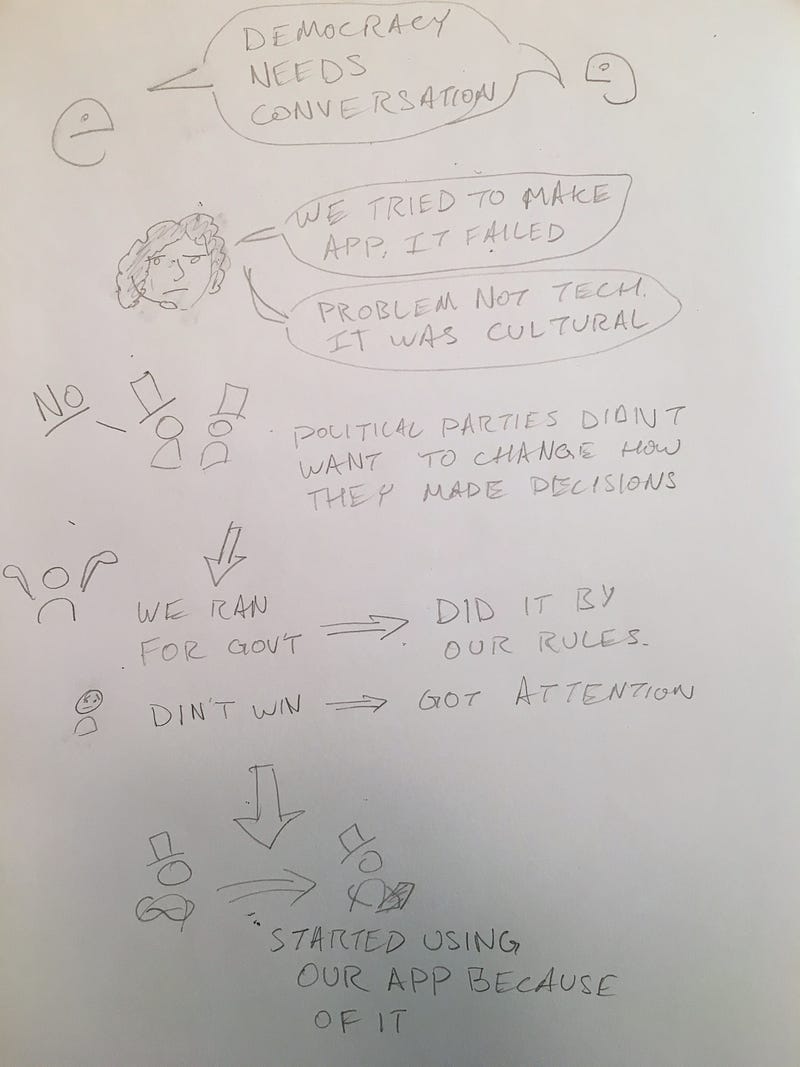 DEMOCRACY
NEEDS
CONVERSATION
WE TRIED TO MAKE
APP. IT FAILED
PROBLEM NOT TECH.
IT WAS CULTURAL
NO
POLITICAL PARTIES DIDN'T
WANT TO CHANGE HOW
THEY MADE DECISIONS
WE RAN
FOR GOVT
DID IT BY
OUR RULES.
DIN'T WIN
GOT ATTENTION
STARTED USING
OUR APP BECAUSE
OF IT